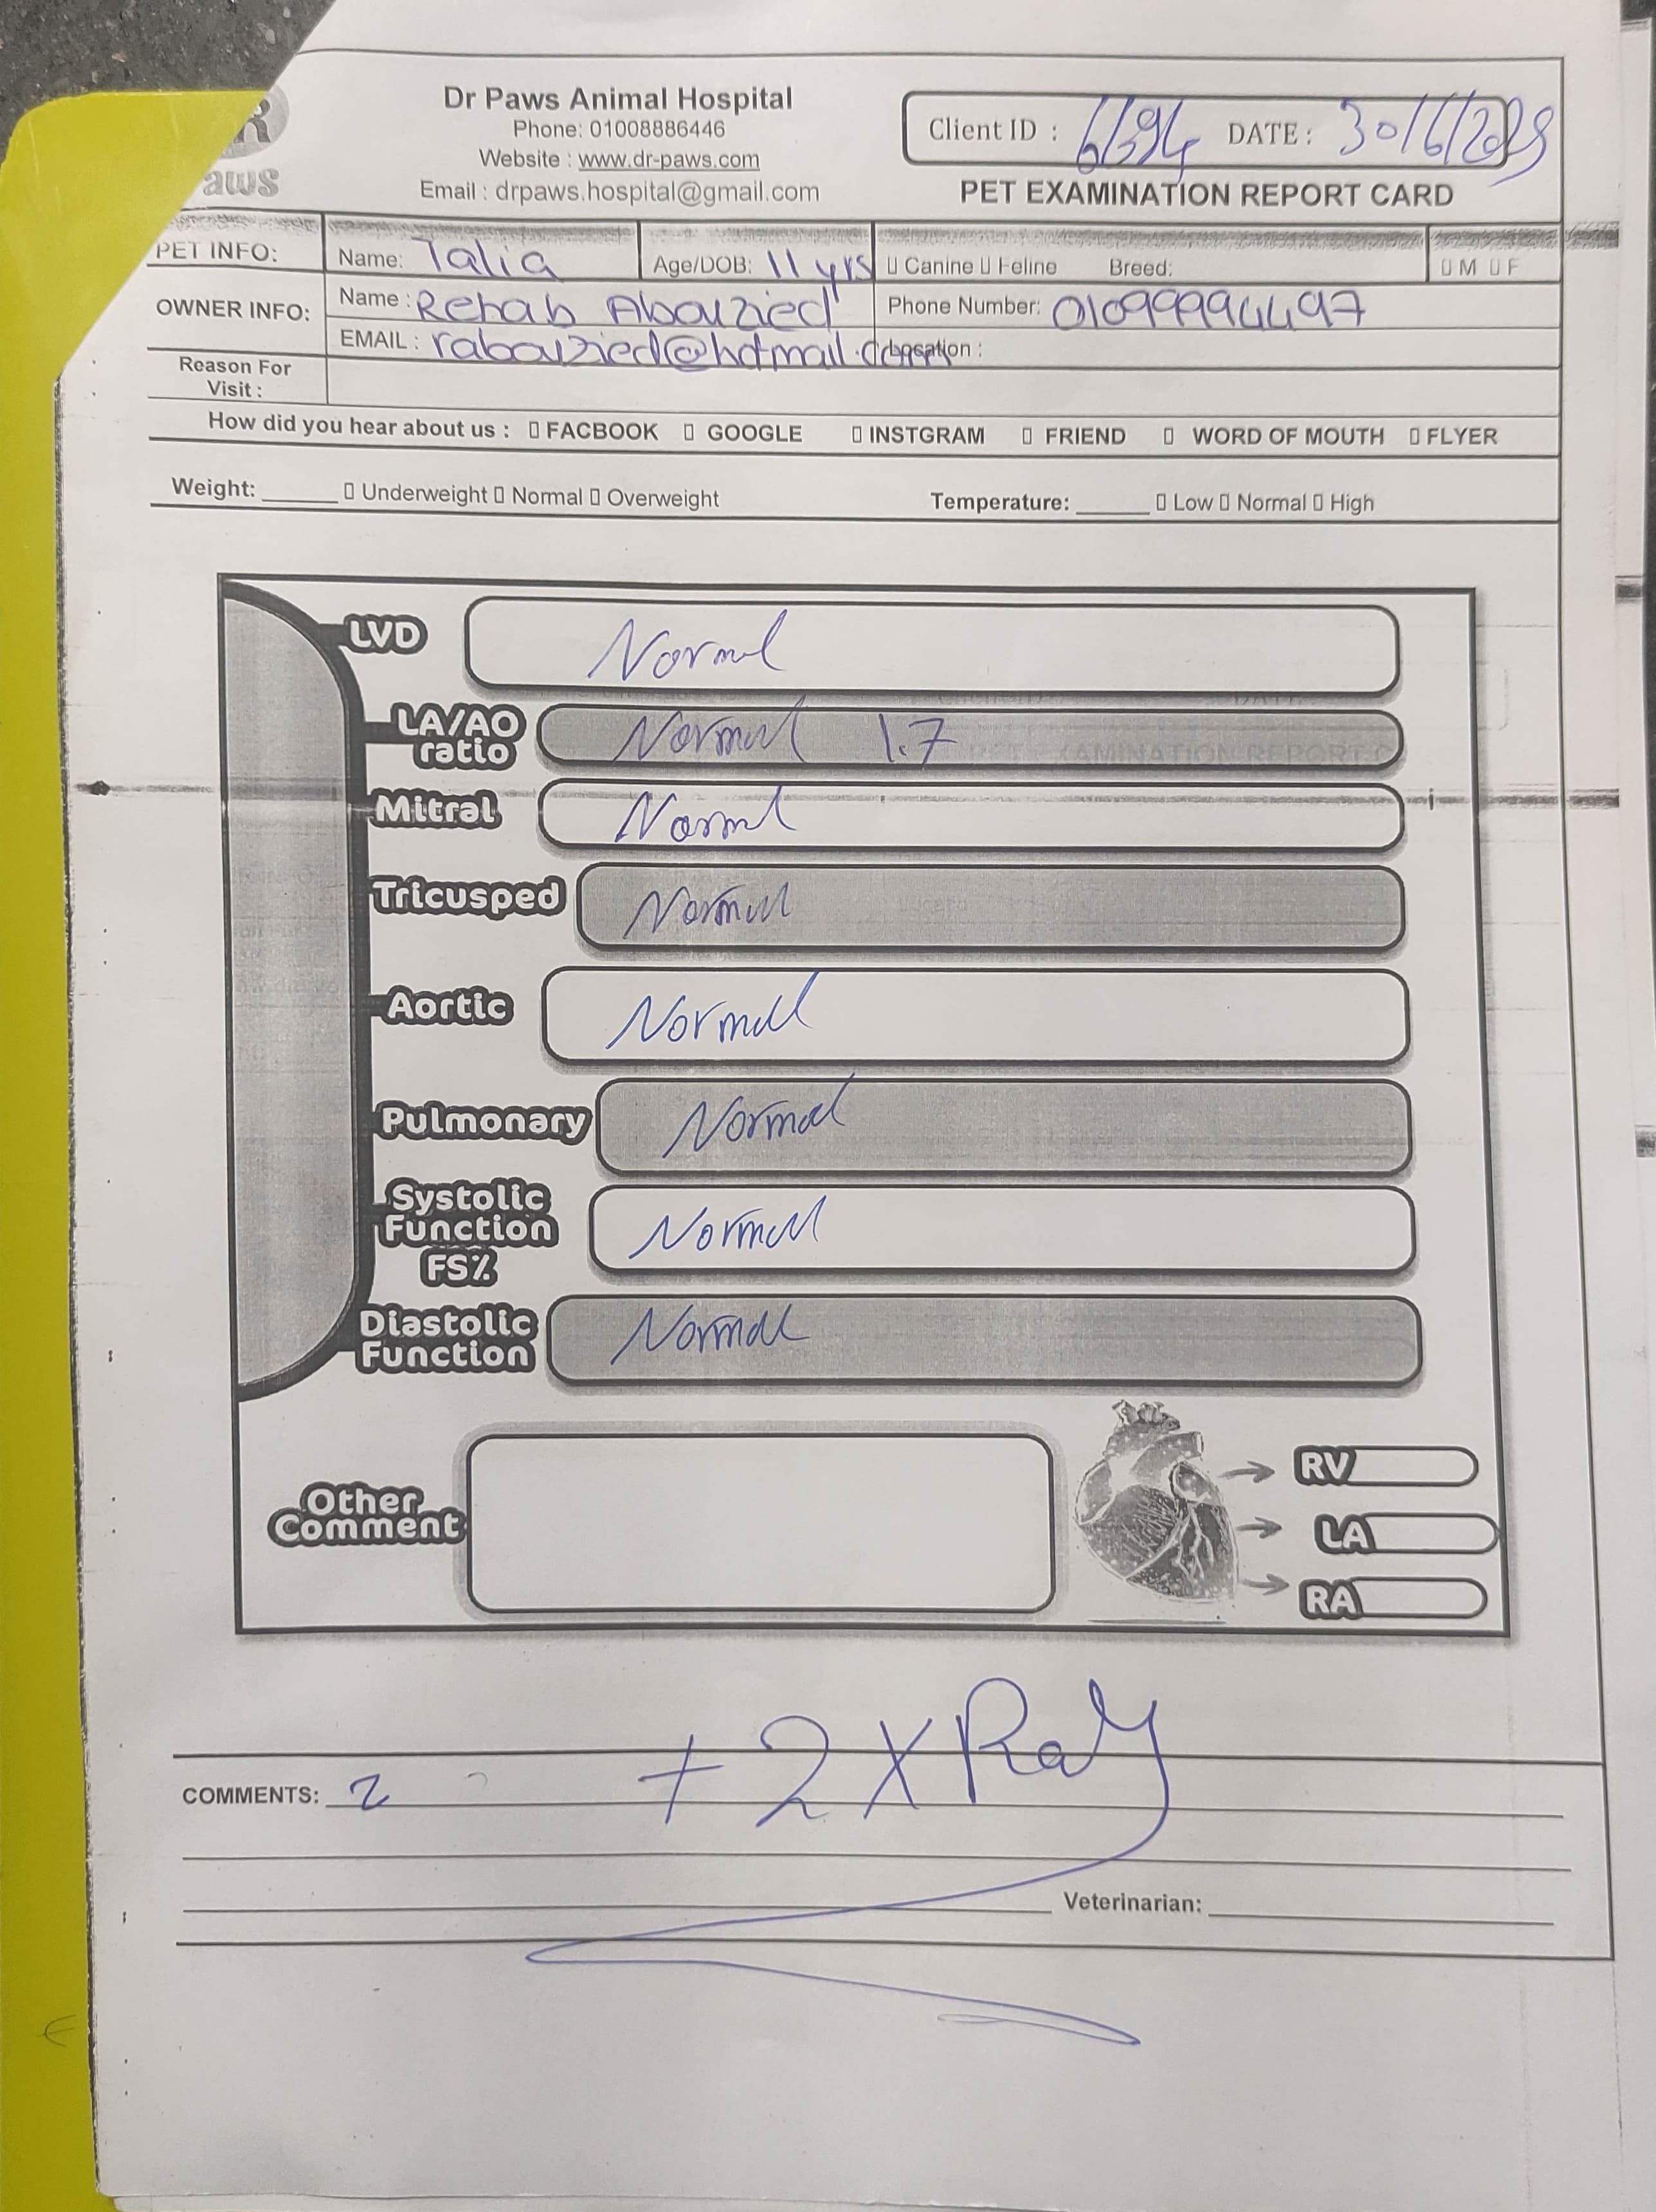 Dr Paws Animal Hospital
Phone: 01008886446
Website : www.dr-paws.com
Email : drpaws.hospital@gmail.com
aws
Client ID : DATE : 30/6/2025
PET EXAMINATION REPORT CARD
PET INFO: Name: Talia Age/DOB: 11 yrs Canine Feline Breed: M F
OWNER INFO: Name : Rehab Abouzied Phone Number: 01099994497
EMAIL : rabouzied@hotmail.com Location :
Reason For
Visit :
How did you hear about us : FACBOOK GOOGLE INSTGRAM FRIEND WORD OF MOUTH FLYER
Weight: ______ Underweight Normal Overweight Temperature: ______ Low Normal High
LVD Normal
LA/AO
ratio Normal 1.7
Mitral Normal
Tricusped Normal
Aortic Normal
Pulmonary Normal
Systolic
Function
FS% Normal
Diastolic
Function Normal
Other
Comment
RV
LA
RA
+ 2 X Ray
COMMENTS: 2
Veterinarian: